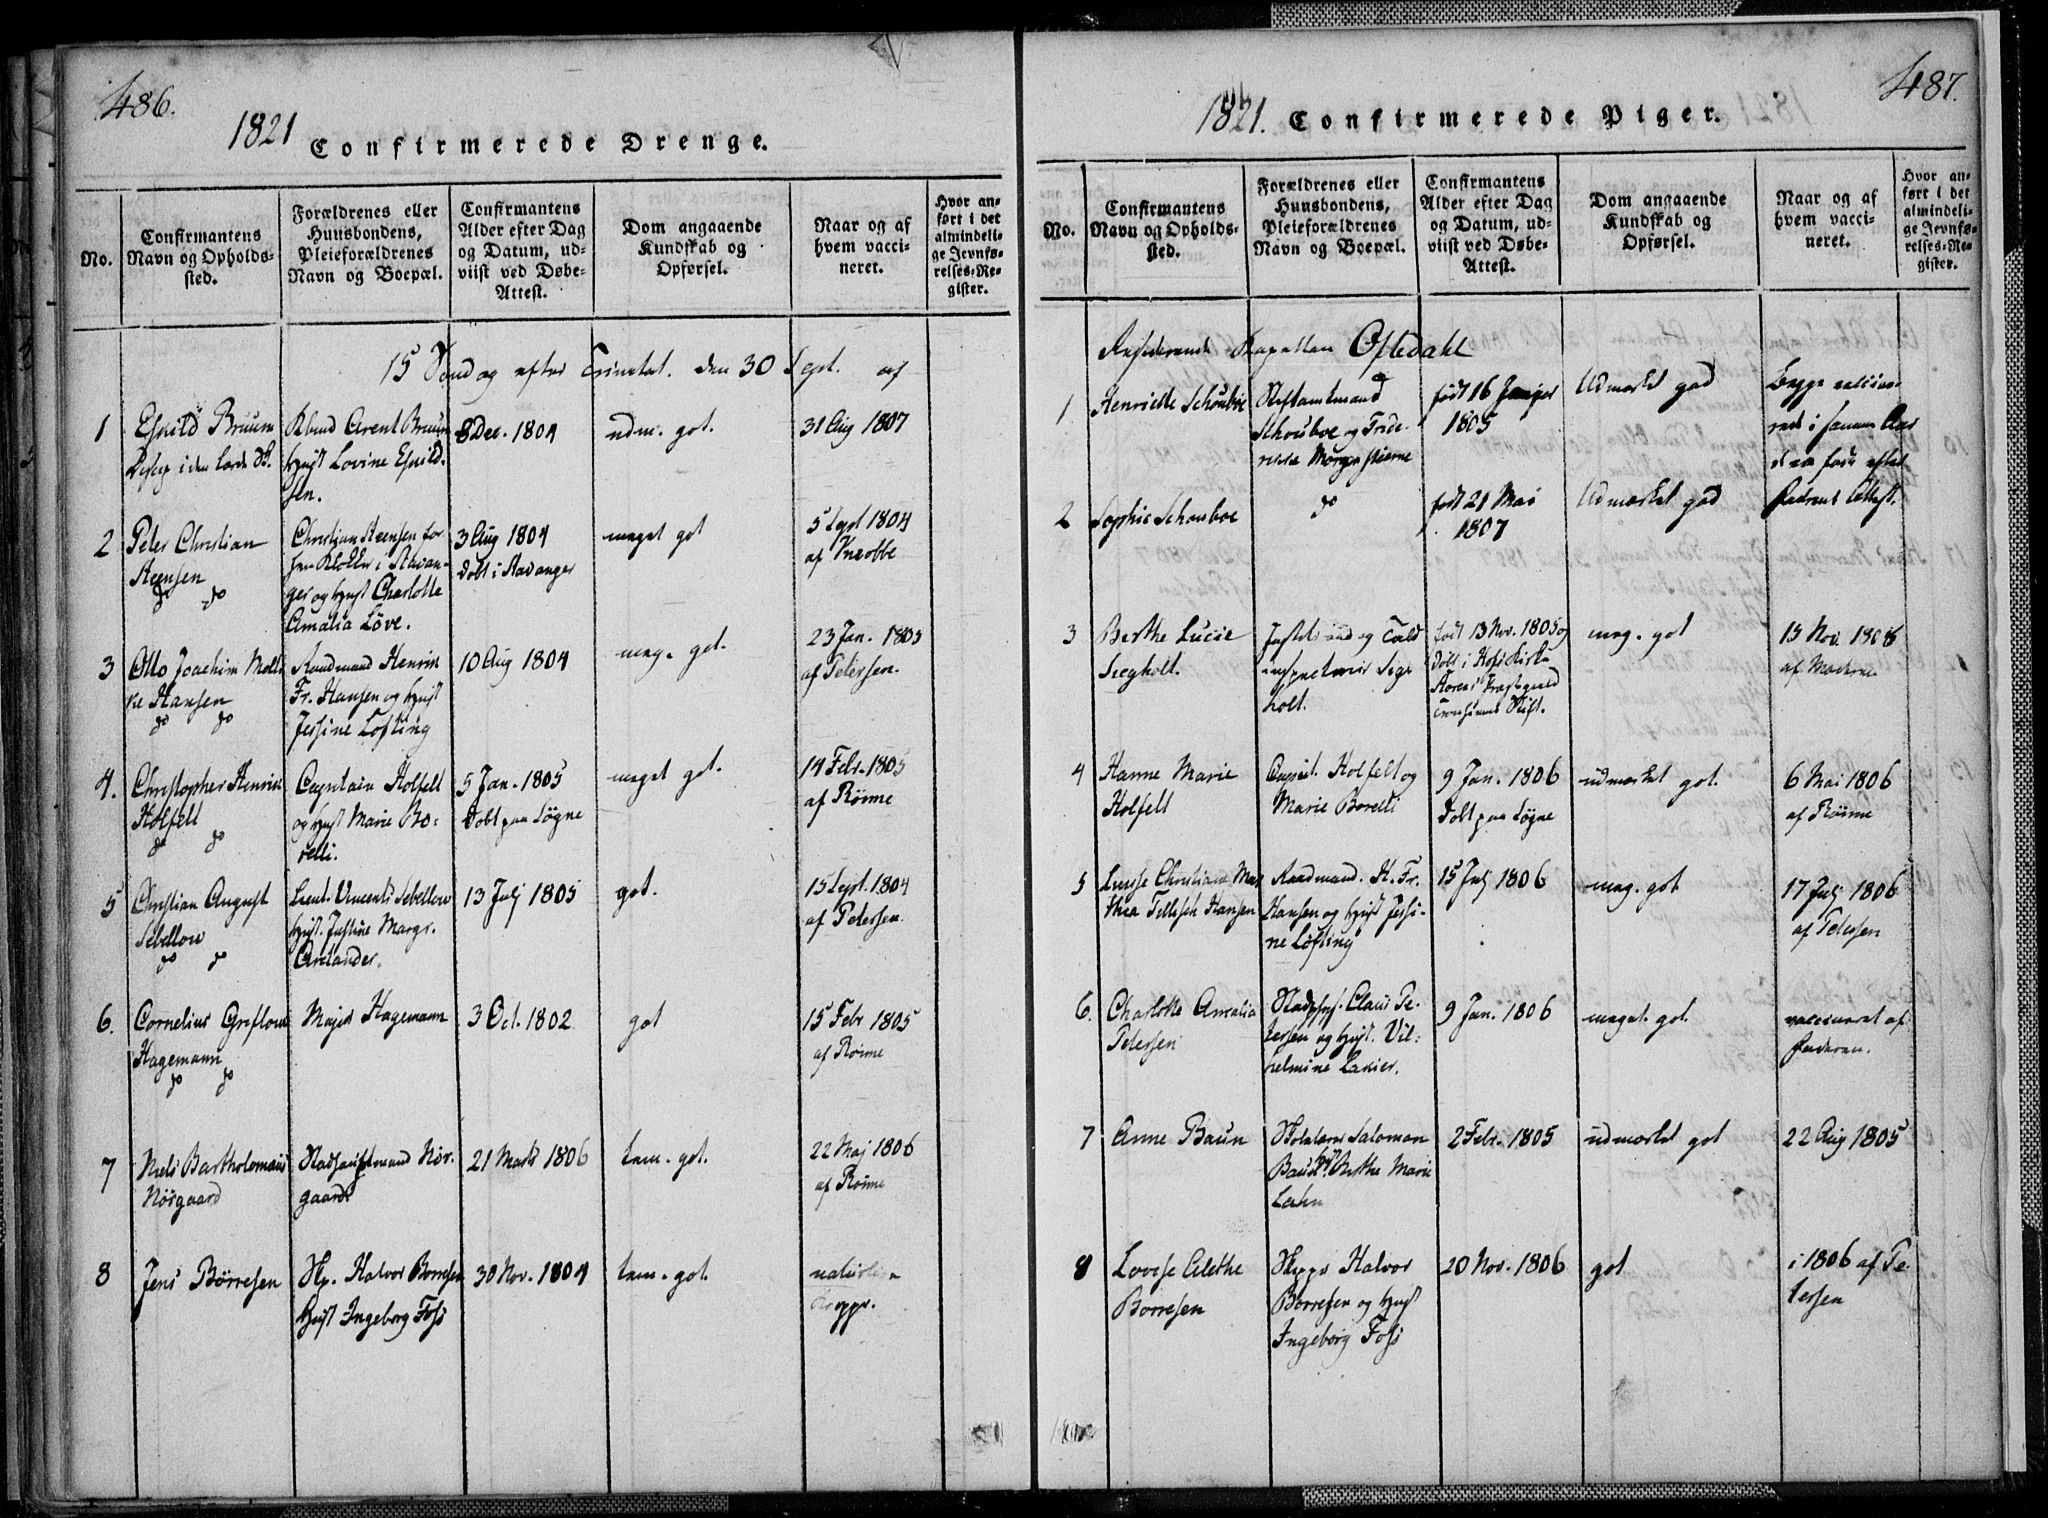 486.
1821 Confirmerede Drenge.
No.
Confirmantens
Navn og Opholds-
sted.
Forældrenes eller
Huusbondens,
Pleieforældrenes
Navn og Boepæl.
Confirmantens
Alder efter Dag
og Datum, ud-
viist ved Døbe-
Attest.
Dom angaaende
Kundskab og
Opførsel.
Naar og af
hvem vacci-
neret.
Hvor an-
ført i det
almindeli-
ge Jevnfø-
relses-Re-
gister.
15 Søndag efter Trinitat. den 30 Sept. af
1
Eskild Bruun
i den lærde
Kbmd Arent Bruun
Hust Lovine Eskild-
sen.
8 Dec. 1804
udm. got.
31 Aug 1807
2
Peter Christian
Steensen
do do
Christian Steensen for-
hen Klokker i Stavan-
ger og Hust Charlotte
Amalia Löve.
3 Aug 1804
döbt i Stavanger
meget got
5 Sept 1804
af
3
Otto Joachim Molt-
ke Hansen
do do
Raadmand Henrik
Fr. Hansen og Hust
Jessine Löfting
10 Aug 1804
meg. got.
23 Jan. 1805
af Petersen.
4.
Christopher Henrik
Holfelt
do do
Capitain Holfelt
og Hust Marie Bo-
relli.
5 Jan. 1805
Döbt paa Løgne
meget got.
14 Febr. 1805
af Röime
5
Christian August
Sebellow
do do
Lieut. Vincents Sebellow
Hust. Justine Margr.
Arctander.
13 Julj 1805
got.
15 Sept. 1804
af Petersen.
6.
Cornelius
Hagemann
do do
Major Hagemann
3 Oct. 1802
got
15 Febr 1805
af Röime
7
Niels Bartholomæus
Nörgaard
Stadshauptmand Nör-
gaard
21 Marts 1806
tem. got.
22 Maj 1806
af Röime
8
Jens Börresen
Sk. Halvor Borresen
Hust Ingeborg Foss
30 Nov. 1804
tem. got.
naturlige
Kopper.
487.
1821. Confirmerede Piger.
No.
Confirmantens
Navn og Opholds-
sted.
Forældrenes eller
Huusbondens,
Pleieforældrenes
Navn og Boepæl.
Confirmantens
Alder efter Dag
og Datum, ud-
viist ved Døbe-
Attest.
Dom angaaende
Kundskab og
Opførsel.
Naar og af
hvem vacci-
neret.
Hvor an-
ført i det
almindeli-
ge Jevnfø-
relses-Re-
gister.
Residerende Kapellan Oftedahl
1
Henriette Schouboe
Stiftamtmand
Schouboe og Fride-
rikke Morgenstierne
födt 16 Januar
1805
Udmærket god
Begge vaccine-
rede i samme Aar
de ere fødte efter
Faderens Attest.
2
Sophie Schouboe
do
födt 21 Mai
1807
Udmærket god
3
Berthe Lucie
Seegholt.
Justitsraad og Told
inspecteur Seg-
holt.
födt 13 Nov. 1805 og
döbt i Hofs Kirke
Præstegield
Tronhiems Stift.
meg. got
15 Nov. 1808
af Moderen
4
Hanne Marie
Holfelt
Capit. Holfelt og
Marie Borelli
9 Jan. 1806
Döbt paa Løgne
udmærket got.
6 Mai 1806
af Röime
5
Luise Christiane Mar-
thea Tellesch Hansen
Raadmand. H. Fr.
Hansen og Hust Jessi-
ne Löfting
15 Julj 1806
meg. got
17 Julj 1806
af Petersen
6.
Charlotte Amalia
Petersen
Stadsphys. Claus Pe-
tersen og Hust. Vil-
helmine Lasier.
9 Jan. 1806
meget. got.
vaccineret af
Faderen.
7
Anne Baun
Salomon
Baun Hust Berthe Marie
2 Febr. 1805
udmærket got
22 Aug 1805
8
Lovise Alethe
Borresen
Skippr Halvor
Borresen og Hust
Ingeborg Foss
20 Nov. 1806
got
i 1806 af Pe-
tersen